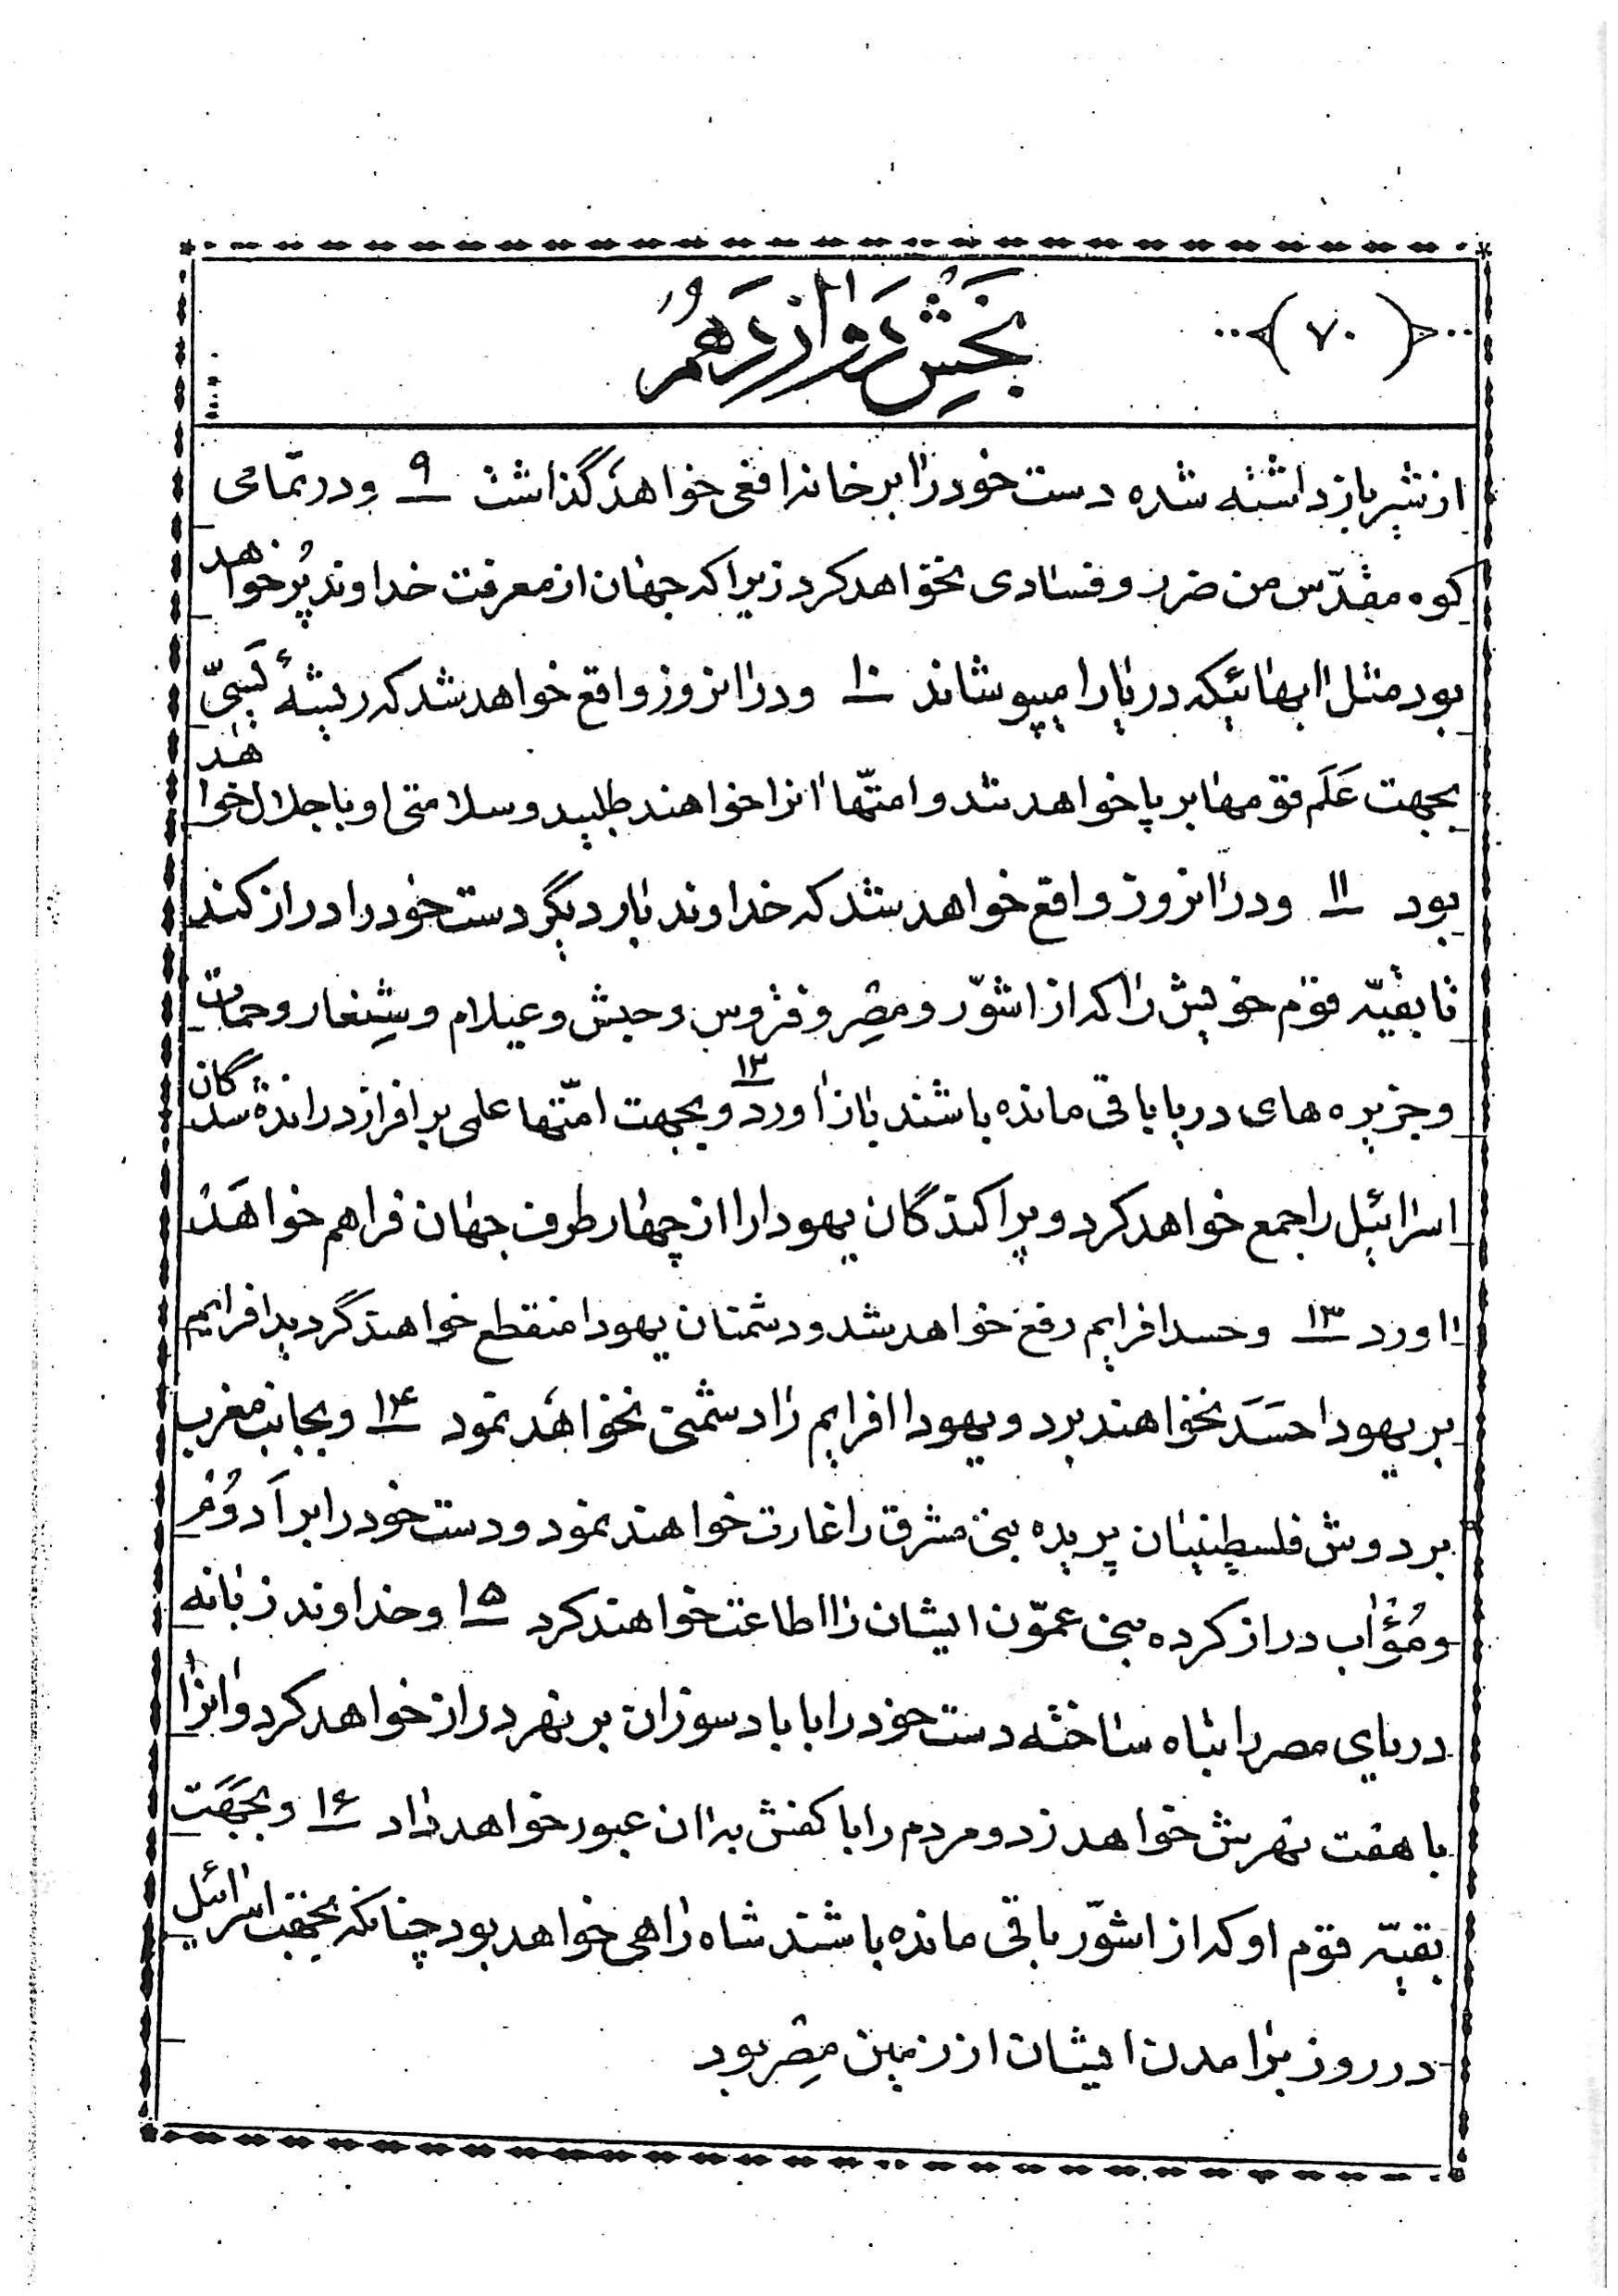 ﴿۷۰﴾
بخش دوازدهم
از شیر باز داشته شده دست خود را بر خانه افعی خواهد گذاشت ۹ و در تمامی
کوه مقدّس من ضرر و فسادی نخواهد کرد زیرا که جهان از معرفت خداوند پُر خواهد
بود مثل ابهائیکه دریا را میپوشاند ۱۰ و در انروز واقع خواهد شد که ریشهٔ یَسّی
بجهت عَلَم قومها بر پا خواهد شد و امتّها انرا خواهند طلبید و سلامتی او با جلال خواهد
بود ۱۱ و در انروز واقع خواهد شد که خداوند بار دیگر دست خود را دراز کند
تا بقیّه قوم خویش را که از اشوّر و مصِر و فتروس و حبش و عیلام و شِنعار و حمات
و جزیره های دریا باقی مانده باشند باز اورد ۱۲ و بجهت امّتها علمی بر افراز درانده شدگان
اسرائیل را جمع خواهد کرد و پراکندگان یهودا را از چهار طرف جهان فراهم خواهَد
اورد ۱۳ و حسد افرایم رفع خواهد شد و دشمنان یهودا منقطع خواهند گردید افرایم
بر یهودا حسَدَ نخواهند برد و یهودا افرایم را دشمنی نخواهَد نمود ۱۴ و بجانب مغرب
بر دوش فلسطینیان پریده بنی مشرق را غارت خواهند نمود و دست خود را بر اَدوُم
و مُؤاب دراز کرده بنی عمّون ایشان را اطاعت خواهند کرد ۱۵ و خداوند زبانه
دریای مصر را تباه ساخته دست خود را با باد سوزان بر نهر دراز خواهد کرد و انرا
با هفت نهرش خواهد زد و مردم را با کفش به ان عبور خواهد داد ۱۶ و بجَهَت
بقیّه قوم او که از اشوّر باقی مانده باشند شاه راهی خواهد بود چنانکه بجهت اسرائیل
در روز برامدن ایشان از زمین مصِر بود